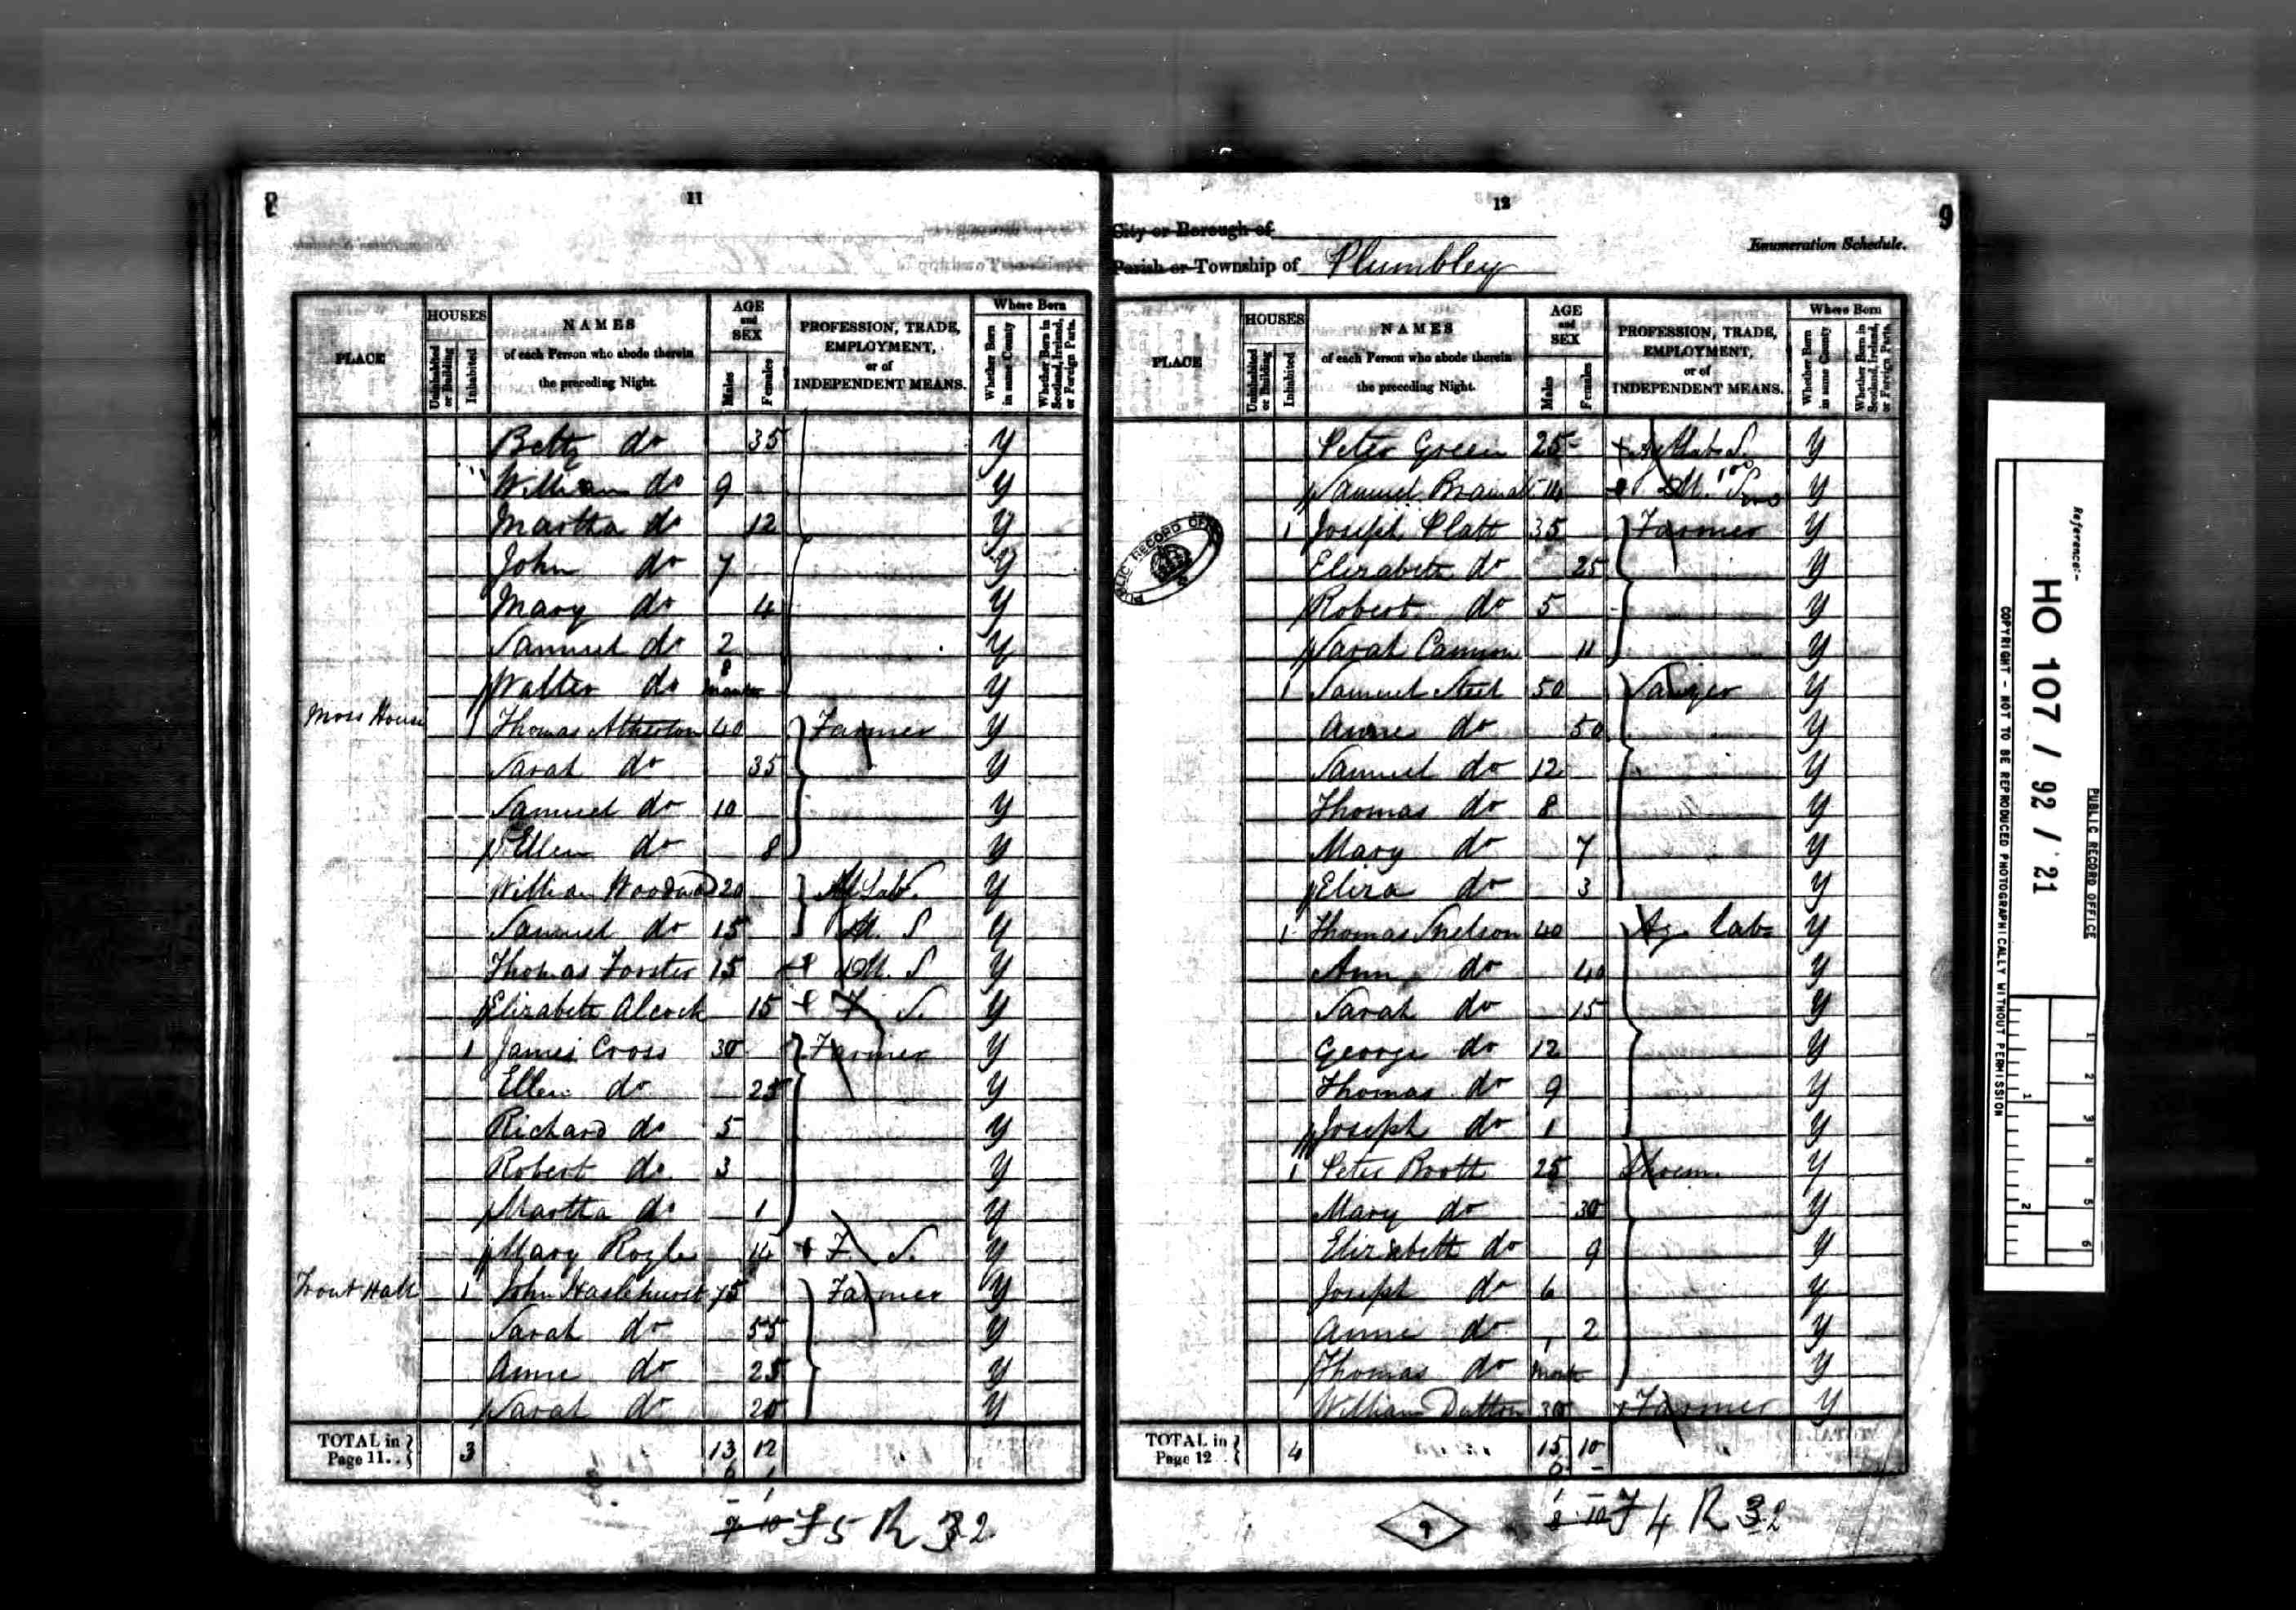 8
11
PLACE
HOUSES
Uninhabited or Building
Inhabited
NAMES
of each Person who abode therein
the preceding Night.
AGE
and
SEX
Males
Females
PROFESSION, TRADE,
EMPLOYMENT,
or of
INDEPENDENT MEANS.
Where Born
Whether Born in same County
Whether Born in Scotland, Ireland, or Foreign Parts.
Betty do 35 Y
William do 9 Y
Martha do 12 Y
John do 7 Y
Mary do 4 Y
Samuel do 2 Y
Walter do 8 months Y
Moss House 1 Thomas Atherton 40 Farmer Y
Sarah do 35 Y
Samuel do 10 Y
Ellen do 8 Y
William Woodward 20 Ag Lab. Y
Samuel do 15 M. S Y
Thomas Forster 15 M. S Y
Elizabeth Alcock 15 F. S. Y
1 James Cross 30 Farmer Y
Ellen do 25 Y
Richard do 5 Y
Robert do 3 Y
Martha do 1 Y
Mary Royle 14 F. S. Y
Trout Hall 1 John Haslehurst 75 Farmer Y
Sarah do 55 Y
Anne do 25 Y
Sarah do 20 Y
TOTAL in Page 11.. 3 13 12
F 5 R 32
12
9
City or Borough of
Parish or Township of Plumbley
Enumeration Schedule.
PLACE
HOUSES
Uninhabited or Building
Inhabited
NAMES
of each Person who abode therein
the preceding Night.
AGE
and
SEX
Males
Females
PROFESSION, TRADE,
EMPLOYMENT,
or of
INDEPENDENT MEANS.
Where Born
Whether Born in same County
Whether Born in Scotland, Ireland, or Foreign Parts.
Peter Green 25 Y
Samuel 14 M. Y
1 Joseph Platt 35 Farmer Y
Elizabeth do 25 Y
Robert do 5 Y
Sarah Cannon 11 Y
1 Samuel Steel 50 Sawyer Y
Anne do 50 Y
Samuel do 12 Y
Thomas do 8 Y
Mary do 7 Y
Eliza do 3 Y
1 Thomas Snelson 40 Ag. Lab Y
Ann do 40 Y
Sarah do 15 Y
George do 12 Y
Thomas do 9 Y
Joseph do 1 Y
1 Peter Booth 25 Shoem. Y
Mary do 30 Y
Elizabeth do 9 Y
Joseph do 6 Y
Anne do 2 Y
Thomas do 1 Month Y
William Dutton 30 Farmer Y
TOTAL in Page 12.. 4 15 10
9
F 4 R 32
PUBLIC RECORD OFFICE
PUBLIC RECORD OFFICE
Reference:-
HO 107 / 92 / 21
COPYRIGHT - NOT TO BE REPRODUCED PHOTOGRAPHICALLY WITHOUT PERMISSION
1 2 3 4 5 6
1 2